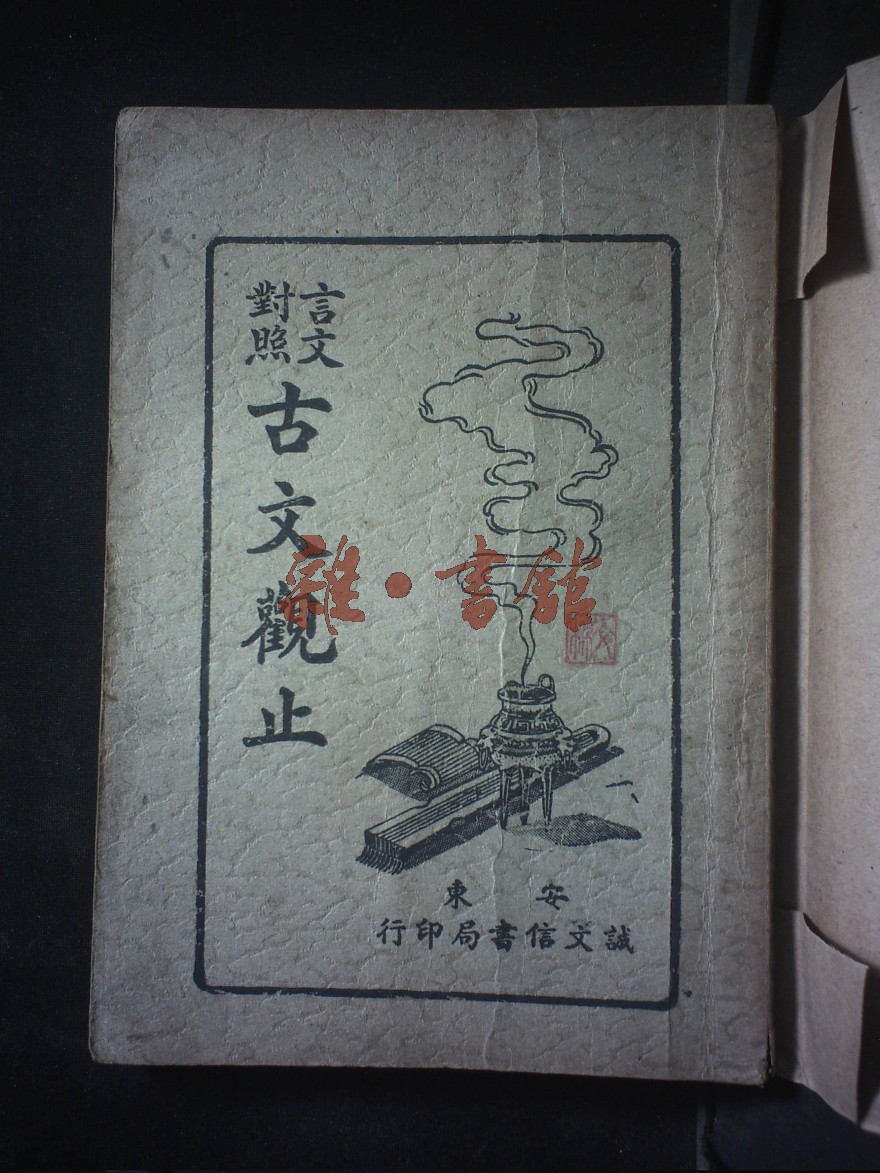 言文
對照
古文觀止
安東
誠文信書局印行
雜·書館